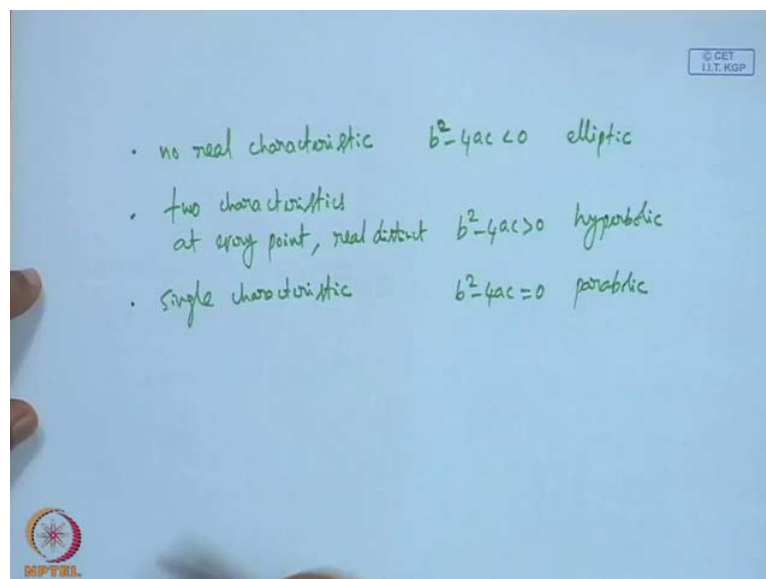 © CET
I.I.T. KGP
. no real characteristic b²-4ac<0 elliptic
. two characteristics
at every point, real distinct b²-4ac>0 hyperbolic
. single characteristic b²-4ac=0 parabolic
NPTEL